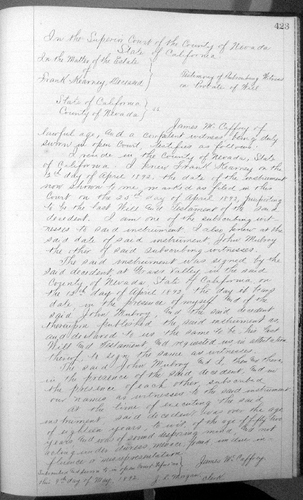 423
In the Superior Court of the County of Nevada
State of California
In the Matter of the Estate
of
Frank Kearney, Deceased
Testimony of Subscribing Witness
on Probate of Will
State of California
County of Nevada } ss
James W. Caffrey of
lawful age, and a competent witness being duly
sworn in open Court, testifies as follows:
I reside in the County of Nevada, State
of California. I knew Frank Kearney on the
day of April 1892, the date of the instrument
now shown to me, marked as filed in this
Court on the day of April 1892, purporting
to be the last Will and Testament of the said
decedent. I am one of the subscribing wit-
nesses to said instrument. I also knew at the
said date of said instrument John Mulroy
the other of said subscribing witnesses.
The said instrument was signed by the
said decedent, at Grass Valley in the said
County of Nevada State of California, on
the day of April 1892, the day it bears
date in the presence of myself and of the
said John Mulroy and the said decedent
thereupon published the said instrument as
and declared to us the same to be his last
Will and Testament, and requested us in attestation
thereof to sign the same as witnesses.
The said John Mulroy and I then and there,
in the presence of the said decedent, and in
the presence of each other, subscribed
our names as witnesses to the said instrument
At the time of executing the said
instrument, said decedent was over the age
of eighteen years, to wit of the age of fifty two
years and was of sound disposing mind and not
acting under duress, menace, fraud, undue in-
fluence or misrepresentation.
James W. Caffrey
Subscribed and sworn to in open Court before me
this day of May, 1892
Clerk